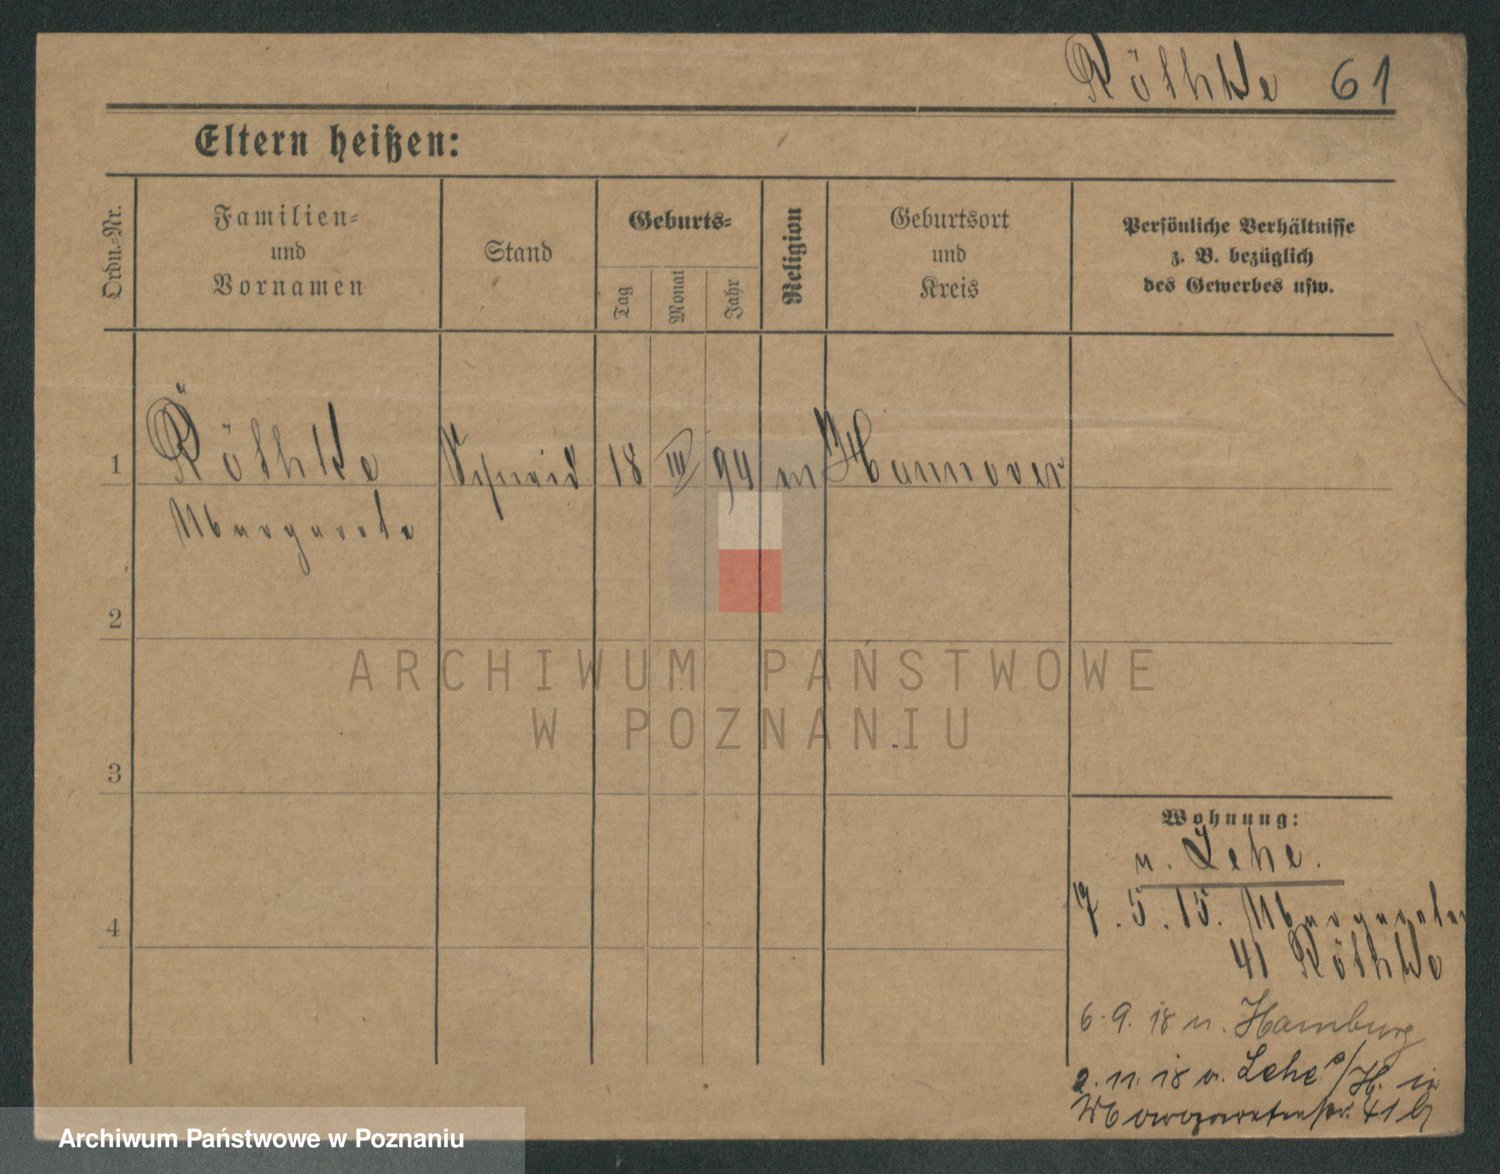 Röthke 61
Eltern heißen:
Ordn.-Nr.
Familien-
und
Vornamen
Stand
Geburts-
Tag
Monat
Jahr
Religion
Geburtsort
und
Kreis
Persönliche Verhältnisse
z. B. bezüglich
des Gewerbes usw.
1 Röthke 18 III 94 Hannover
Margarete
2
ARCHIWUM PAŃSTWOWE
W POZNANIU
3
Wohnung:
Lehe.
7.5.15. Margareten
41 Röthke
4
6.9.18 n. Hamburg
2.11.18 v. Lehe a/H. in
Margaretenstr. 41 b
Archiwum Państwowe w Poznaniu